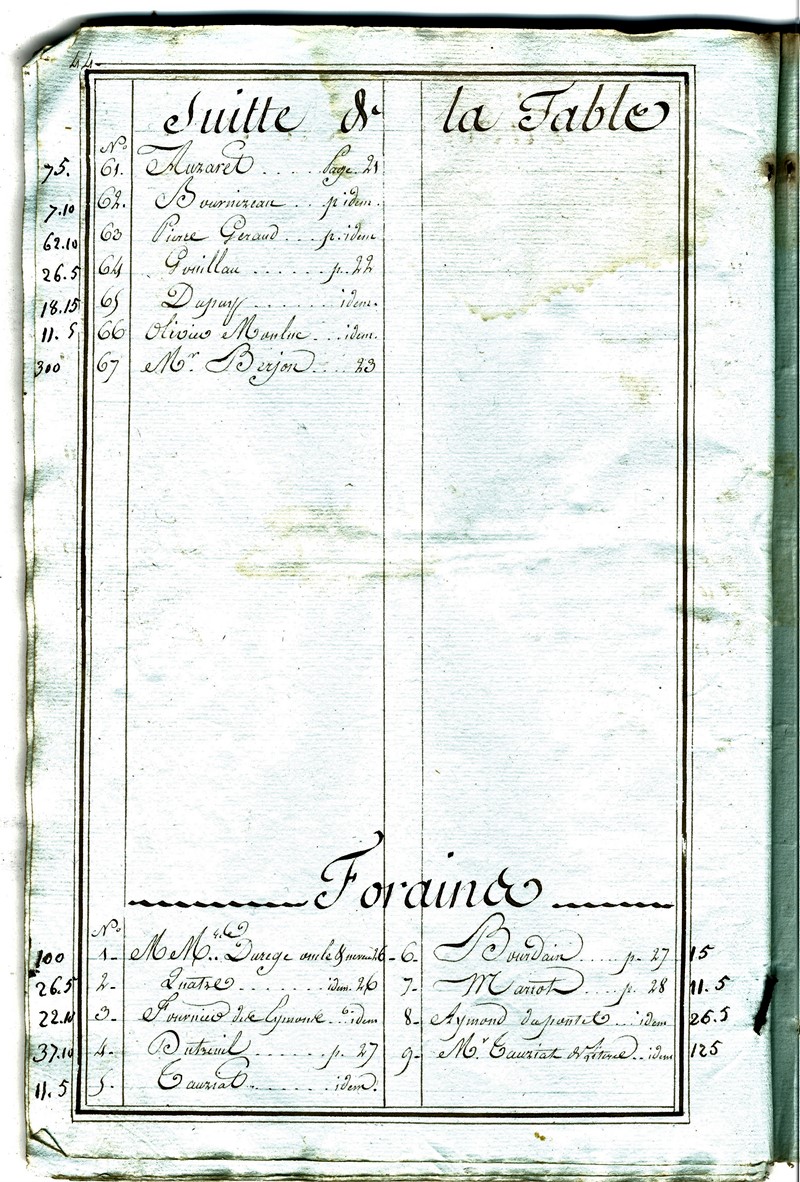 44
Suitte de la Table
N°
75. 61. Auzaret .... Page. 21
7.10 62. Bournizeau .. p idem.
62.10 63 Pierre Geraud ... p. idem
26.5 64 Gouillau ...... p. 22
18.15 65 Dupuy ....... idem.
11.5 66 Olivier Moulue ... idem.
300 67 Mr. Berjon .... 23
Forains
N°
100 1 - MMrs. Durege oncle & neveu 26
26.5 2 - Quatre ....... idem. 26
22.10 3 - Fournier de ... idem
37.10 4 - Dutreuil ....... p. 27
11.5 5 - Tauziat ........ idem.
6 - Bourdain ..... p. 27 15
7 - Mariot ..... p. 28 11.5
8 - Aymond dupontet ... idem 26.5
9 - Mr. Tauziat .. idem 125